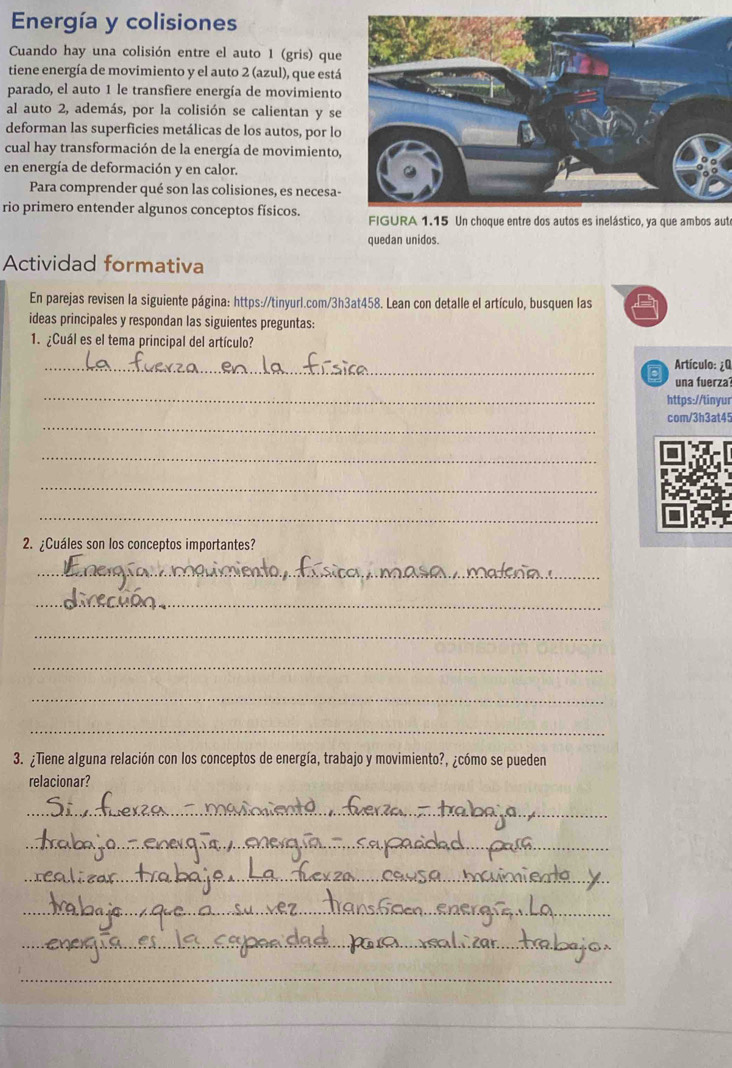 Energía y colisiones
Cuando hay una colisión entre el auto 1 (gris) que
tiene energía de movimiento y el auto 2 (azul), que está
parado, el auto 1 le transfiere energía de movimiento
al auto 2, además, por la colisión se calientan y se
deforman las superficies metálicas de los autos, por lo
cual hay transformación de la energía de movimiento,
en energía de deformación y en calor.
Para comprender qué son las colisiones, es necesa-
rio primero entender algunos conceptos físicos.
FIGURA 1.15 Un choque entre dos autos es inelástico, ya que ambos aut
quedan unidos.
Actividad formativa
En parejas revisen la siguiente página: https://tinyurl.com/3h3at458. Lean con detalle el artículo, busquen las
ideas principales y respondan las siguientes preguntas:
1. ¿Cuál es el tema principal del artículo?
La fuerza en la física
Artículo: ¿Q
una fuerza?
https://tinyur
com/3h3at45
2. ¿Cuáles son los conceptos importantes?
Energía, movimiento, física, masa, materia,
dirección.
3. ¿Tiene alguna relación con los conceptos de energía, trabajo y movimiento?, ¿cómo se pueden
relacionar?
Si, fuerza - movimiento, fuerza - trabajo,
trabajo - energía, energía - capacidad para
realizar trabajo. La fuerza causa movimiento y
trabajo, que a su vez transfieren energía. La
energía es la capacidad para realizar trabajo.